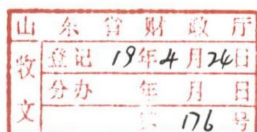 山东省财政厅
收文
登记 19年4月24日
分办 年 月 日
176号